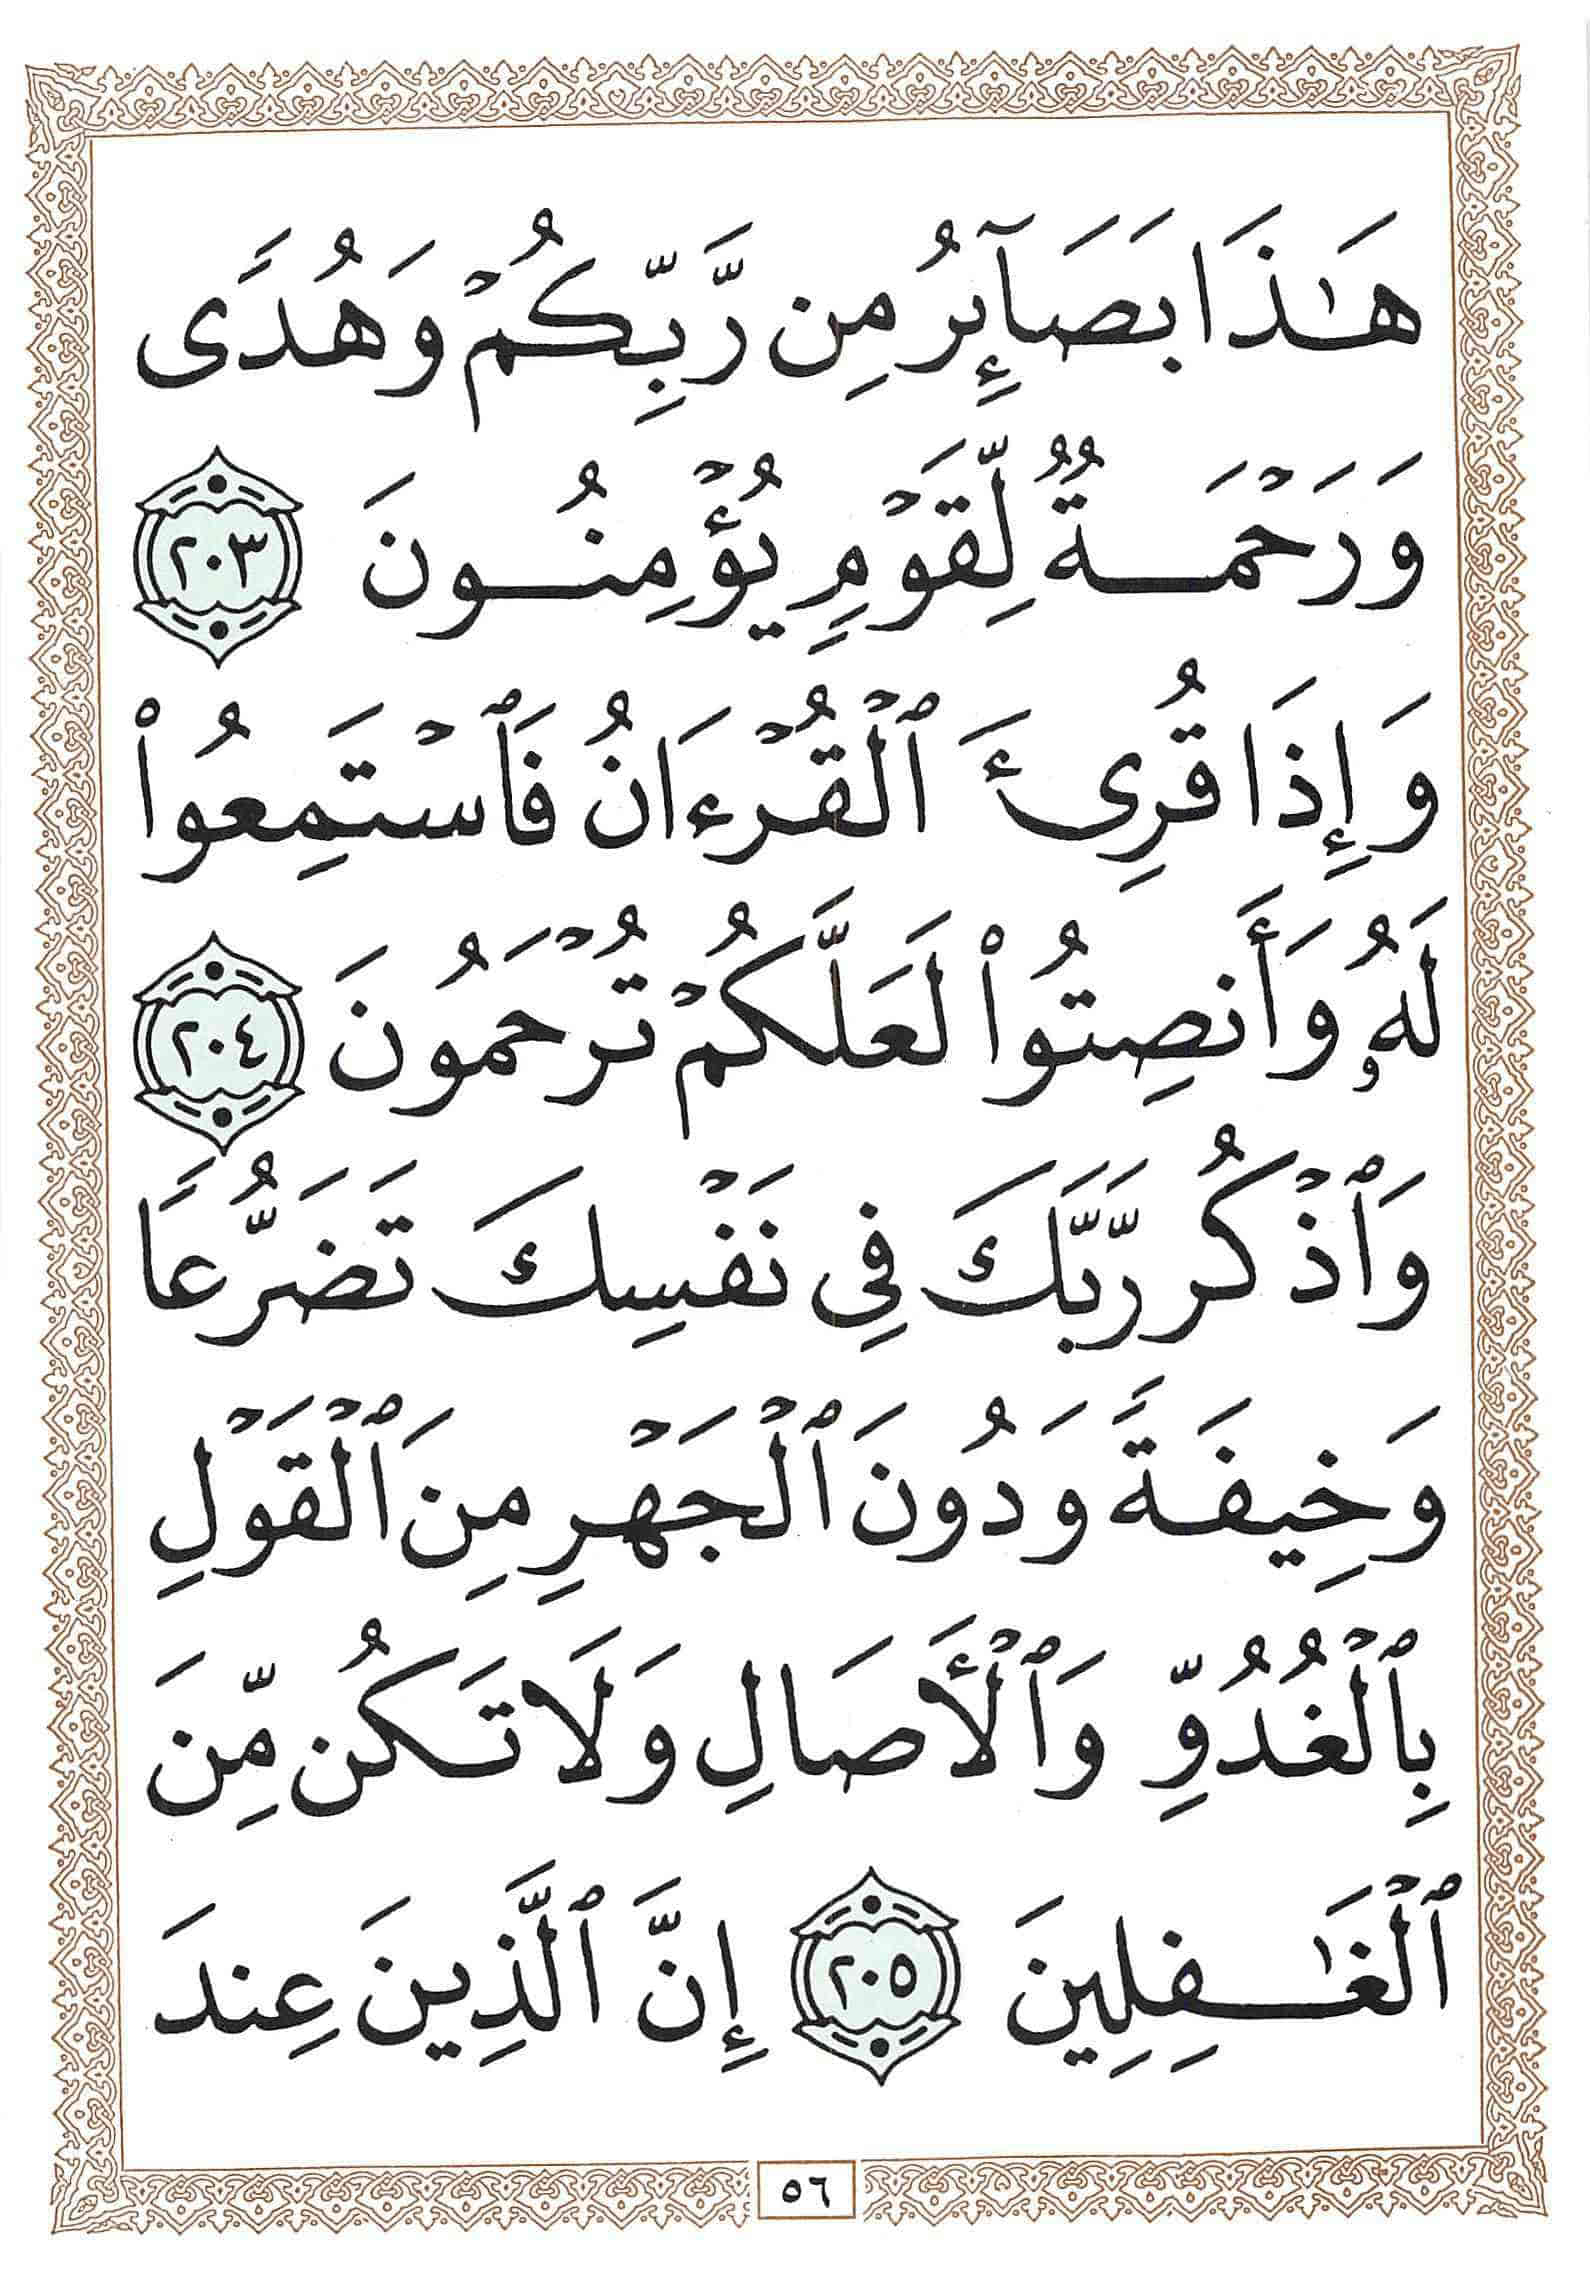 هَـٰذَا بَصَآئِرُ مِن رَّبِّكُمْ وَهُدًى
وَرَحْمَةٌ لِّقَوْمٍ يُؤْمِنُونَ ٢٠٣
وَإِذَا قُرِئَ ٱلْقُرْءَانُ فَٱسْتَمِعُوا۟
لَهُۥ وَأَنصِتُوا۟ لَعَلَّكُمْ تُرْحَمُونَ ٢٠٤
وَٱذْكُر رَّبَّكَ فِى نَفْسِكَ تَضَرُّعًا
وَخِيفَةً وَدُونَ ٱلْجَهْرِ مِنَ ٱلْقَوْلِ
بِٱلْغُدُوِّ وَٱلْأَصَالِ وَلَا تَكُن مِّنَ
ٱلْغَـٰفِلِينَ ٢٠٥ إِنَّ ٱلَّذِينَ عِندَ
٥٦